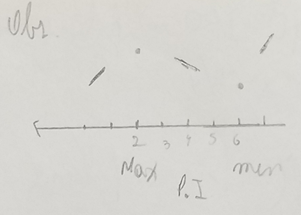 Obs.
2 3 4 5 6
Max P.I men